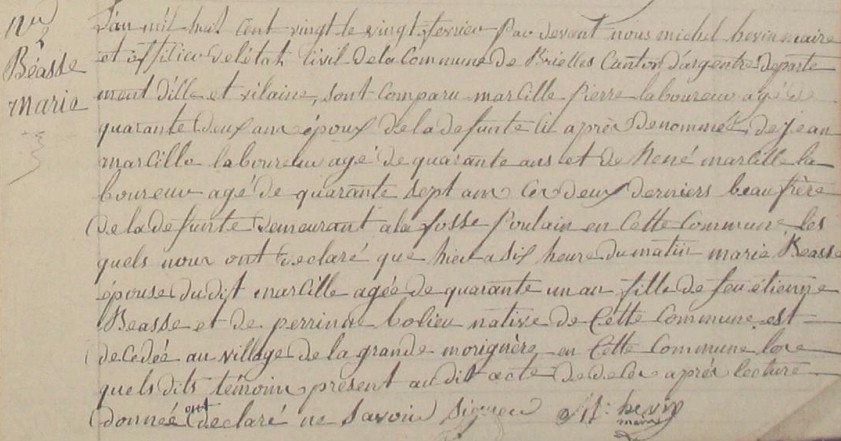 Beasse
marie
L'an mil huit cent vingt le vingt fevrier par devant nous michel hevin maire
et officier de létat civil de la commune de Brielles Canton d'argentré departe
ment d'ille et vilaine, sont comparu marcille pierre laboureur agé de
quarante deux ans époux de la defunte ci après denommeé, de jean
marcille laboureur agé de quarante ans et de René marcille la
boureur agé de quarante sept ans ces deux derniers beaufrère
de la defunte demeurant a la fosse Poulain en cette commune les
quels nous ont declaré que hier a six heure du matin marie Beasse
épouse du dit marcille agée de quarante un an fille de feu étienne
Beasse et de perrinne bolieu native de cette commune est
decedée au village de la grande morignère en cette commune les
quels dits témoins présent au dit acte de deces après lecture
donnée ont declaré ne savoir signer M: hevin
maire